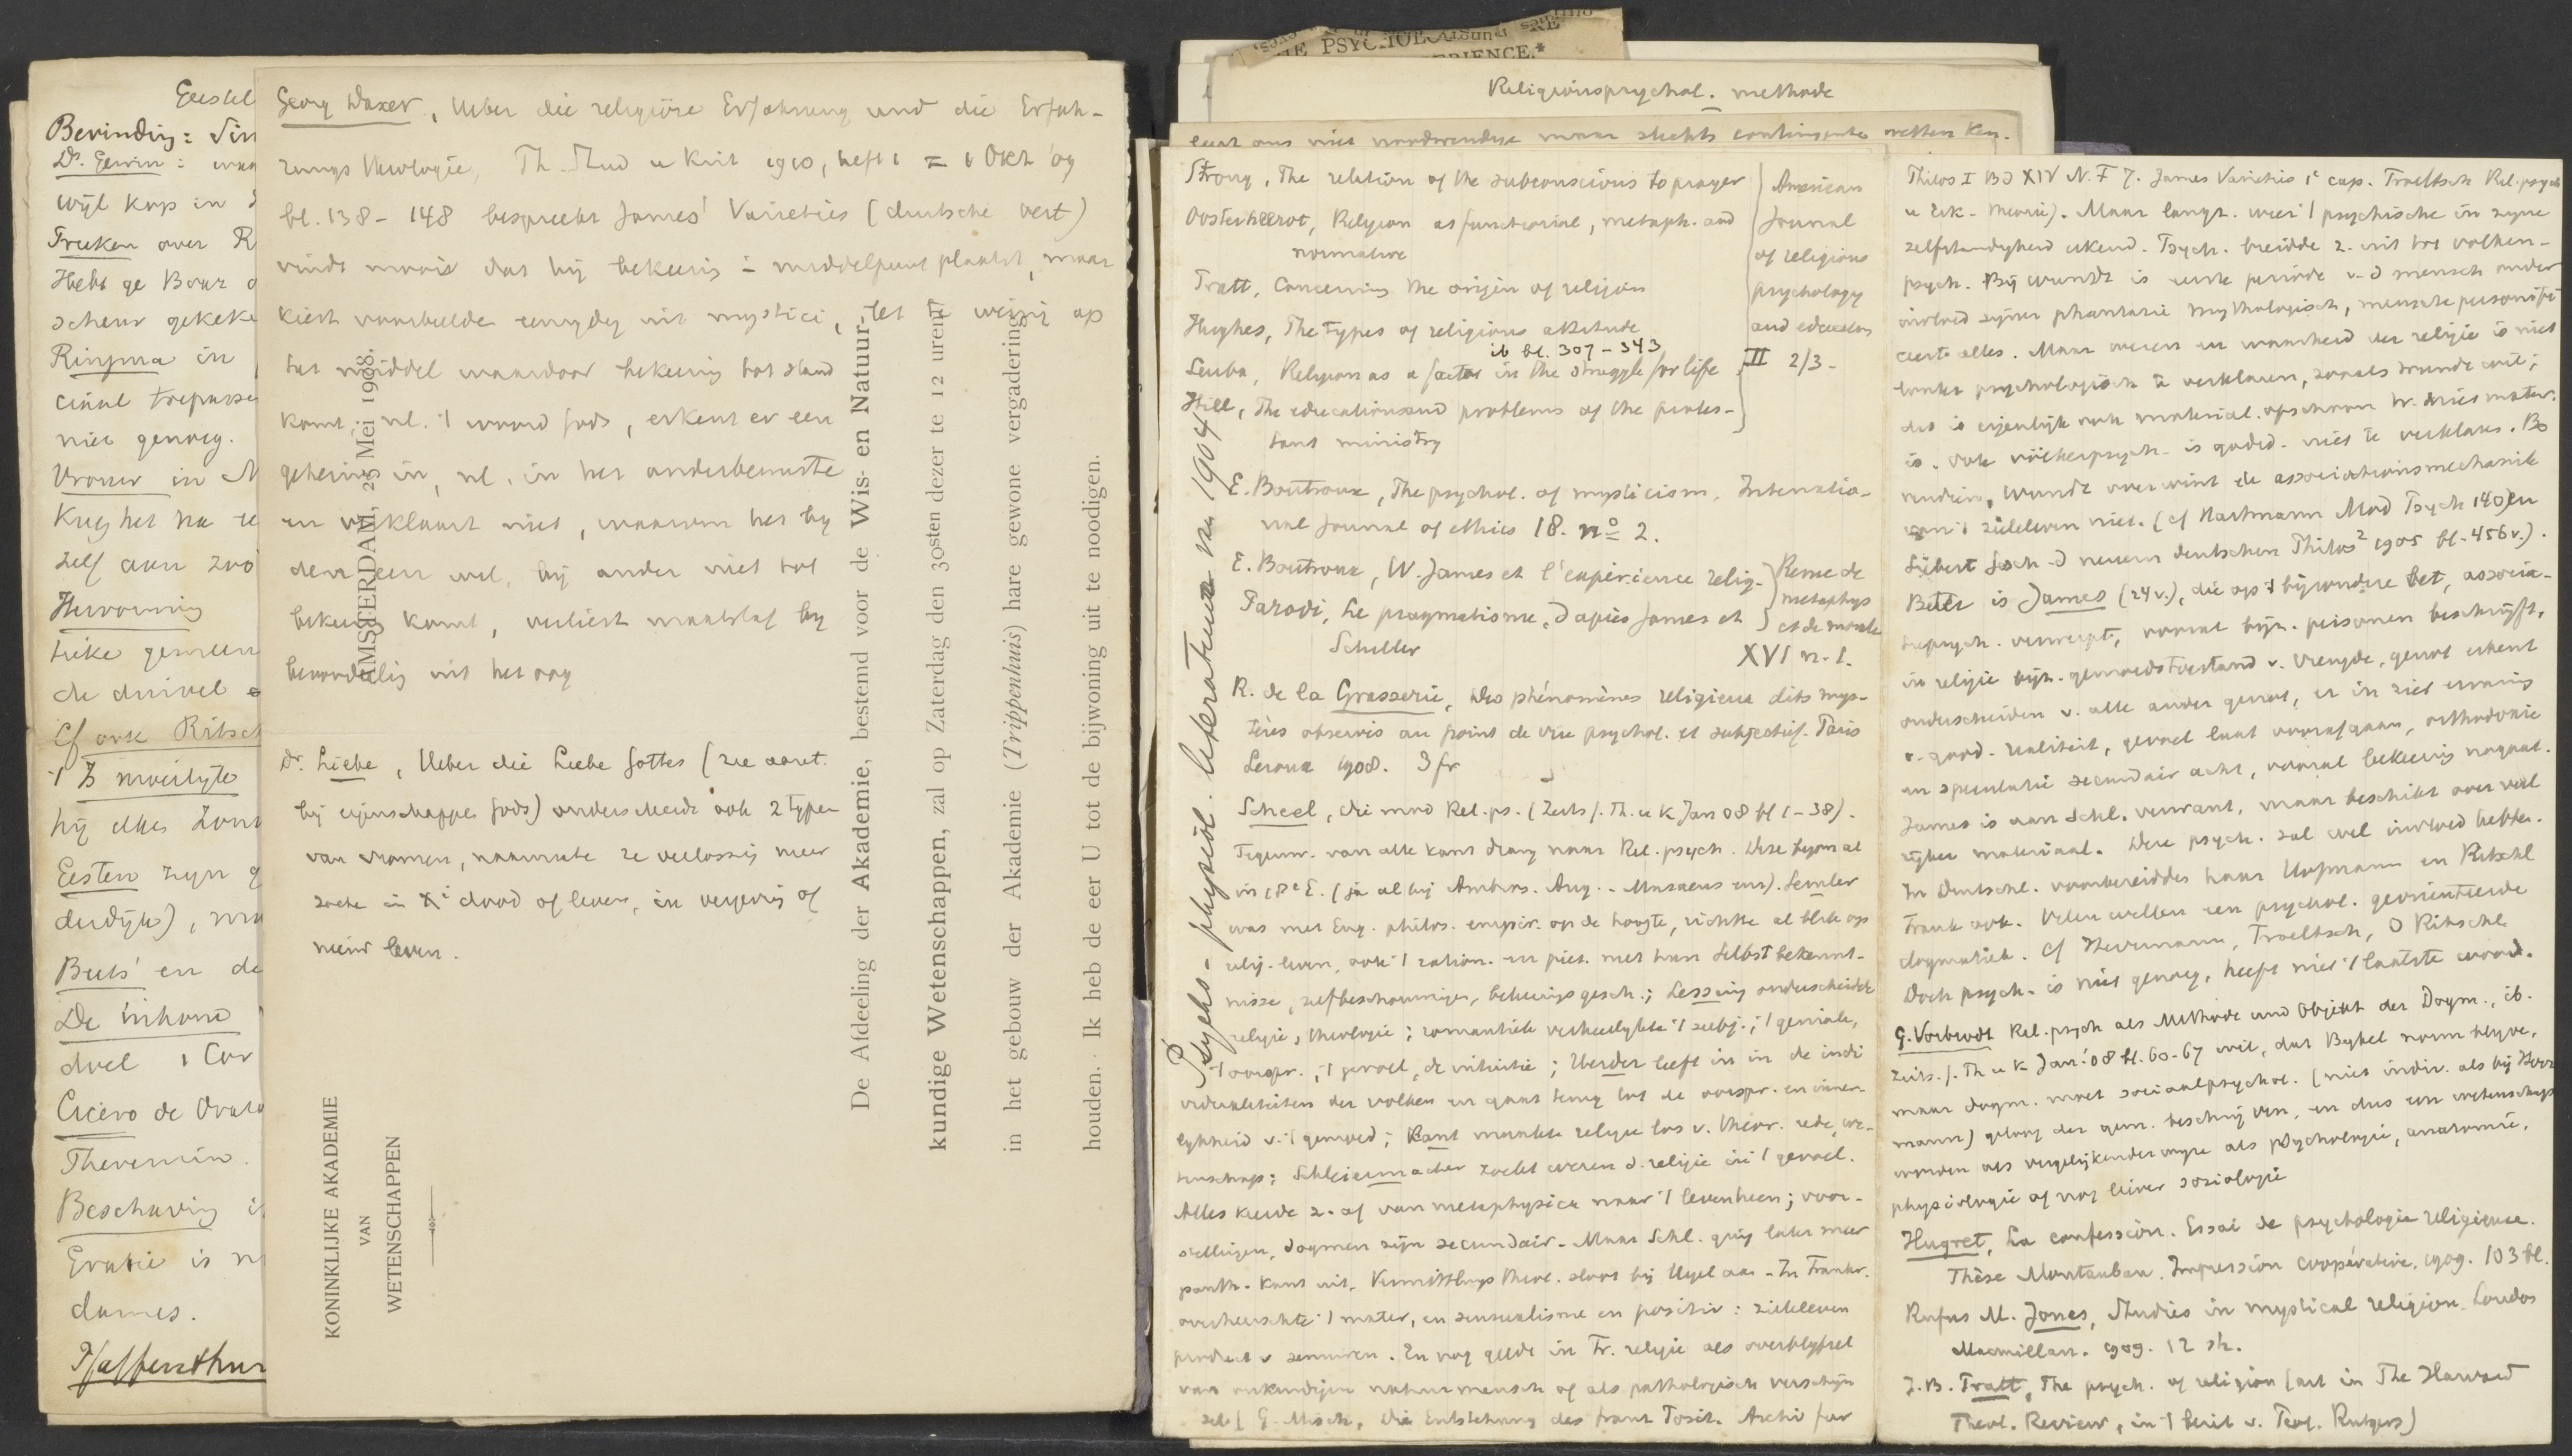 Geestel
Bevinding: Vin
Dr. Gewin: was
wijl kap in d
Freeken over R
Hebt ge Bour o
scheur gekeke
Ringma in
niet genoeg.
Vrouw in N
Krey het na te
zelf aan zoo
Hervorming
tieke gemeen
de duivel e
Cf ook Ritsch
't Is moeilijke
hij elke Zond
Eesten zijn g
derdijk), ma
Buts' en de
De inhoud
doel 1 Cor
Cicero de Orato
Theremin.
Beschaving is
Gratie is n
dames.
Pfaffenthu
Georg Daxer, Ueber die religiöse Erfahrung und die Erfah-
rungs theologie, Th. Stud u Krit 1910, heft 1 = 1 Okt '09
bl. 138 - 148 bespreekt James' Varieties (deutsche vert)
vindt moois dat hij bekeering i middelpunt plaatst, maar
kiest voorbeelden eenzydig uit mystici, let te weinig op
het middel waardoor bekeering tot stand
komt, nl. 't woord Gods, erkent er een
geheims in, nl. in het onderbewuste
en verklaart niet, waarom het by
den een wel, bij ander niet tot
bekeering komt, verliest maatstaf by
beoordeling uit het oog
Dr. Liebe, Ueber die Liebe Gottes (zie aant.
bij eigenschappen Gods) onderscheidt ook 2 typen
van vromen, naarmate ze verlossing meer
zoeken in Xi dood of leven, in vergeving of
nieuw leven.
KONINKLIJKE AKADEMIE
VAN
WETENSCHAPPEN
AMSTERDAM, 23 Mei 1908.
De Afdeeling der Akademie, bestemd voor de Wis- en Natuur-
kundige Wetenschappen, zal op Zaterdag den 30sten dezer te 12 uren
in het gebouw der Akademie (Trippenhuis) hare gewone vergadering
houden. Ik heb de eer U tot de bijwoning uit te noodigen.
THE PSYCHOL
ERIENCE.*
Religionspsychol. methode
leert ons niet noodwendige maar slechts contingente wetten ken.
Psycho-physiol. literatuur 1904
Strong, The relation of the subconscious to prayer
Oosterheerdt, Religion as functional, metaph. and
normative
Pratt, Concerning the origin of religion
Hughes, The types of religious attitude
ib bl. 307 - 343
Leuba, Religion as a factor in the struggle for life
Hill, The educational problems of the protes-
tant ministry
American
Journal
of religious
psychology
and education
III 2/3 -
E. Boutroux, The psychol. of mysticism. Internatio-
nal Journal of ethics 18. no 2.
E. Boutroux, W. James et l'expérience relig.
Parodi, Le pragmatisme, d'apiès James et
Schiller
Revue de
metaphys
et de morale
XVI n. 1.
R. de la Grasserie, Des phénomènes religieux dits mys-
tères observés au point de vue psychol. et subjectif. Paris
Leroux 1908. 3 fr
Scheel, Die mod Rel. ps. (Zeits f. Th. u K Jan 08 bl 1-38).
Tegenw. van alle kant drang naar Rel. psych. Deze begon al
in 18e E. (ja al bij Ambros. Aug. - Musaeus enz). Semler
was met Eng. philos. empir. op de hoogte, richtte al blik op
relig. leven, ook 't ration. en piet. met hun Selbstbekennt-
nisse, zelfbeschouwingen, bekeeringsgesch.; Lessing onderscheidde
religie, theologie; romantiek verheerlykte 't subj.; 't geniale,
't oorspr., 't gevoel, de intuitie; Herder leeft in in de indi
vidualiteiten der volken en gaat terug tot de oorspr. en inner-
lykheid v. 't gemoed; Kant maakte religie los v. theor. rede, we-
tenschap; Schleiermacher zoekt wezen d. religie in 't gevoel.
Alles keerde z. af van metaphysica naar 't leven heen; voor-
stellingen, dogmen zijn secundair. Maar Schl. ging later meer
panth. kant uit. Vermittlungs theol. sloot bij Hegel aan. In Frankr.
overheerschte 't mater. en sensualisme en positiv: zieleleven
product v zenuwen. En nog geldt in Fr. religie als overblyfsel
van onkundigen natuurmensch of als pathologisch verschijn
sel (G. Misch, Die Entstehung des franz Posit. Archiv fur
Philos I Bd XIV N. F 7. James Varieties 1e cap. Troeltsch Rel. psych
u Erk. theorie). Maar langz. werd 't psychische in zyne
zelfstandigheid erkend. Psych. breidde z. uit tot volken-
psych. Bij Wundt is eerste periode v. d mensch onder
invloed zijner phantasie mythologisch, mensch personifi
ceert alles. Maar wezen en waarheid der religie is niet
louter psychologisch te verklaren, zooals Wundt wil;
dat is eigenlijk ook material. ofschoon W. niet mater.
is. Ook völkerpsych. is godsd. niet te verklaren. Bo
vendien, Wundt overwint de associationsmechanik
van 't zieleleven niet. (cf Hartmann Mod Psych 140) en
Siebert Gesch. d neuern deutschen Philos2 1905 bl. 456 v.).
Beter is James (24 v.), die op 't bijzondere let, associa-
tiepsych. verwerpt, vooral bijz. personen beschrijft,
in religie bijz. gemoedstoestand v. vreugde, genot erkent
onderscheiden v. alle ander genot, er in ziet ervaring
v. godd. realiteit, gevoel laat voorafgaan, orthodoxie
en speculatie secundair acht, vooral bekeering nagaat.
James is aan Schl. verwant, maar beschikt over veel
rijker materiaal. Deze psych. zal wel invloed hebben.
In Deutschl. voorbereidden haar Hofmann en Ritschl
Frank ook. Velen willen een psychol. georienteerde
dogmatiek. Cf Herrmann, Troeltsch, O Ritschl
Doch psych. is niet genoeg, heeft niet 't laatste woord.
G. Vorbrodt Rel. psych als Methode und Objekt der Dogm., ib.
Zeits. f. Th u K Jan. '08 bl. 60-67 wil, dat Bybel norm blyve,
maar dogm. moet sociaalpsychol. (niet indiv. als bij Herr
mann) geloof der gem. beschrijven, en dus een wetenschap
worden als vergelijkenderwyze als psychologie, anatomie,
physiologie of nog liever soziologie
Hugret, La confession. Essai de psychologie religieuse.
Thèse Montauban. Impression coopérative. 1909. 103 bl.
Rufus M. Jones, Studies in mystical religion. London
Macmillan. 1909. 12 sh.
J. B. Pratt, The psych. of religion (art in The Harvard
Theol. Review, in 't bezit v. Prof. Rutgers)